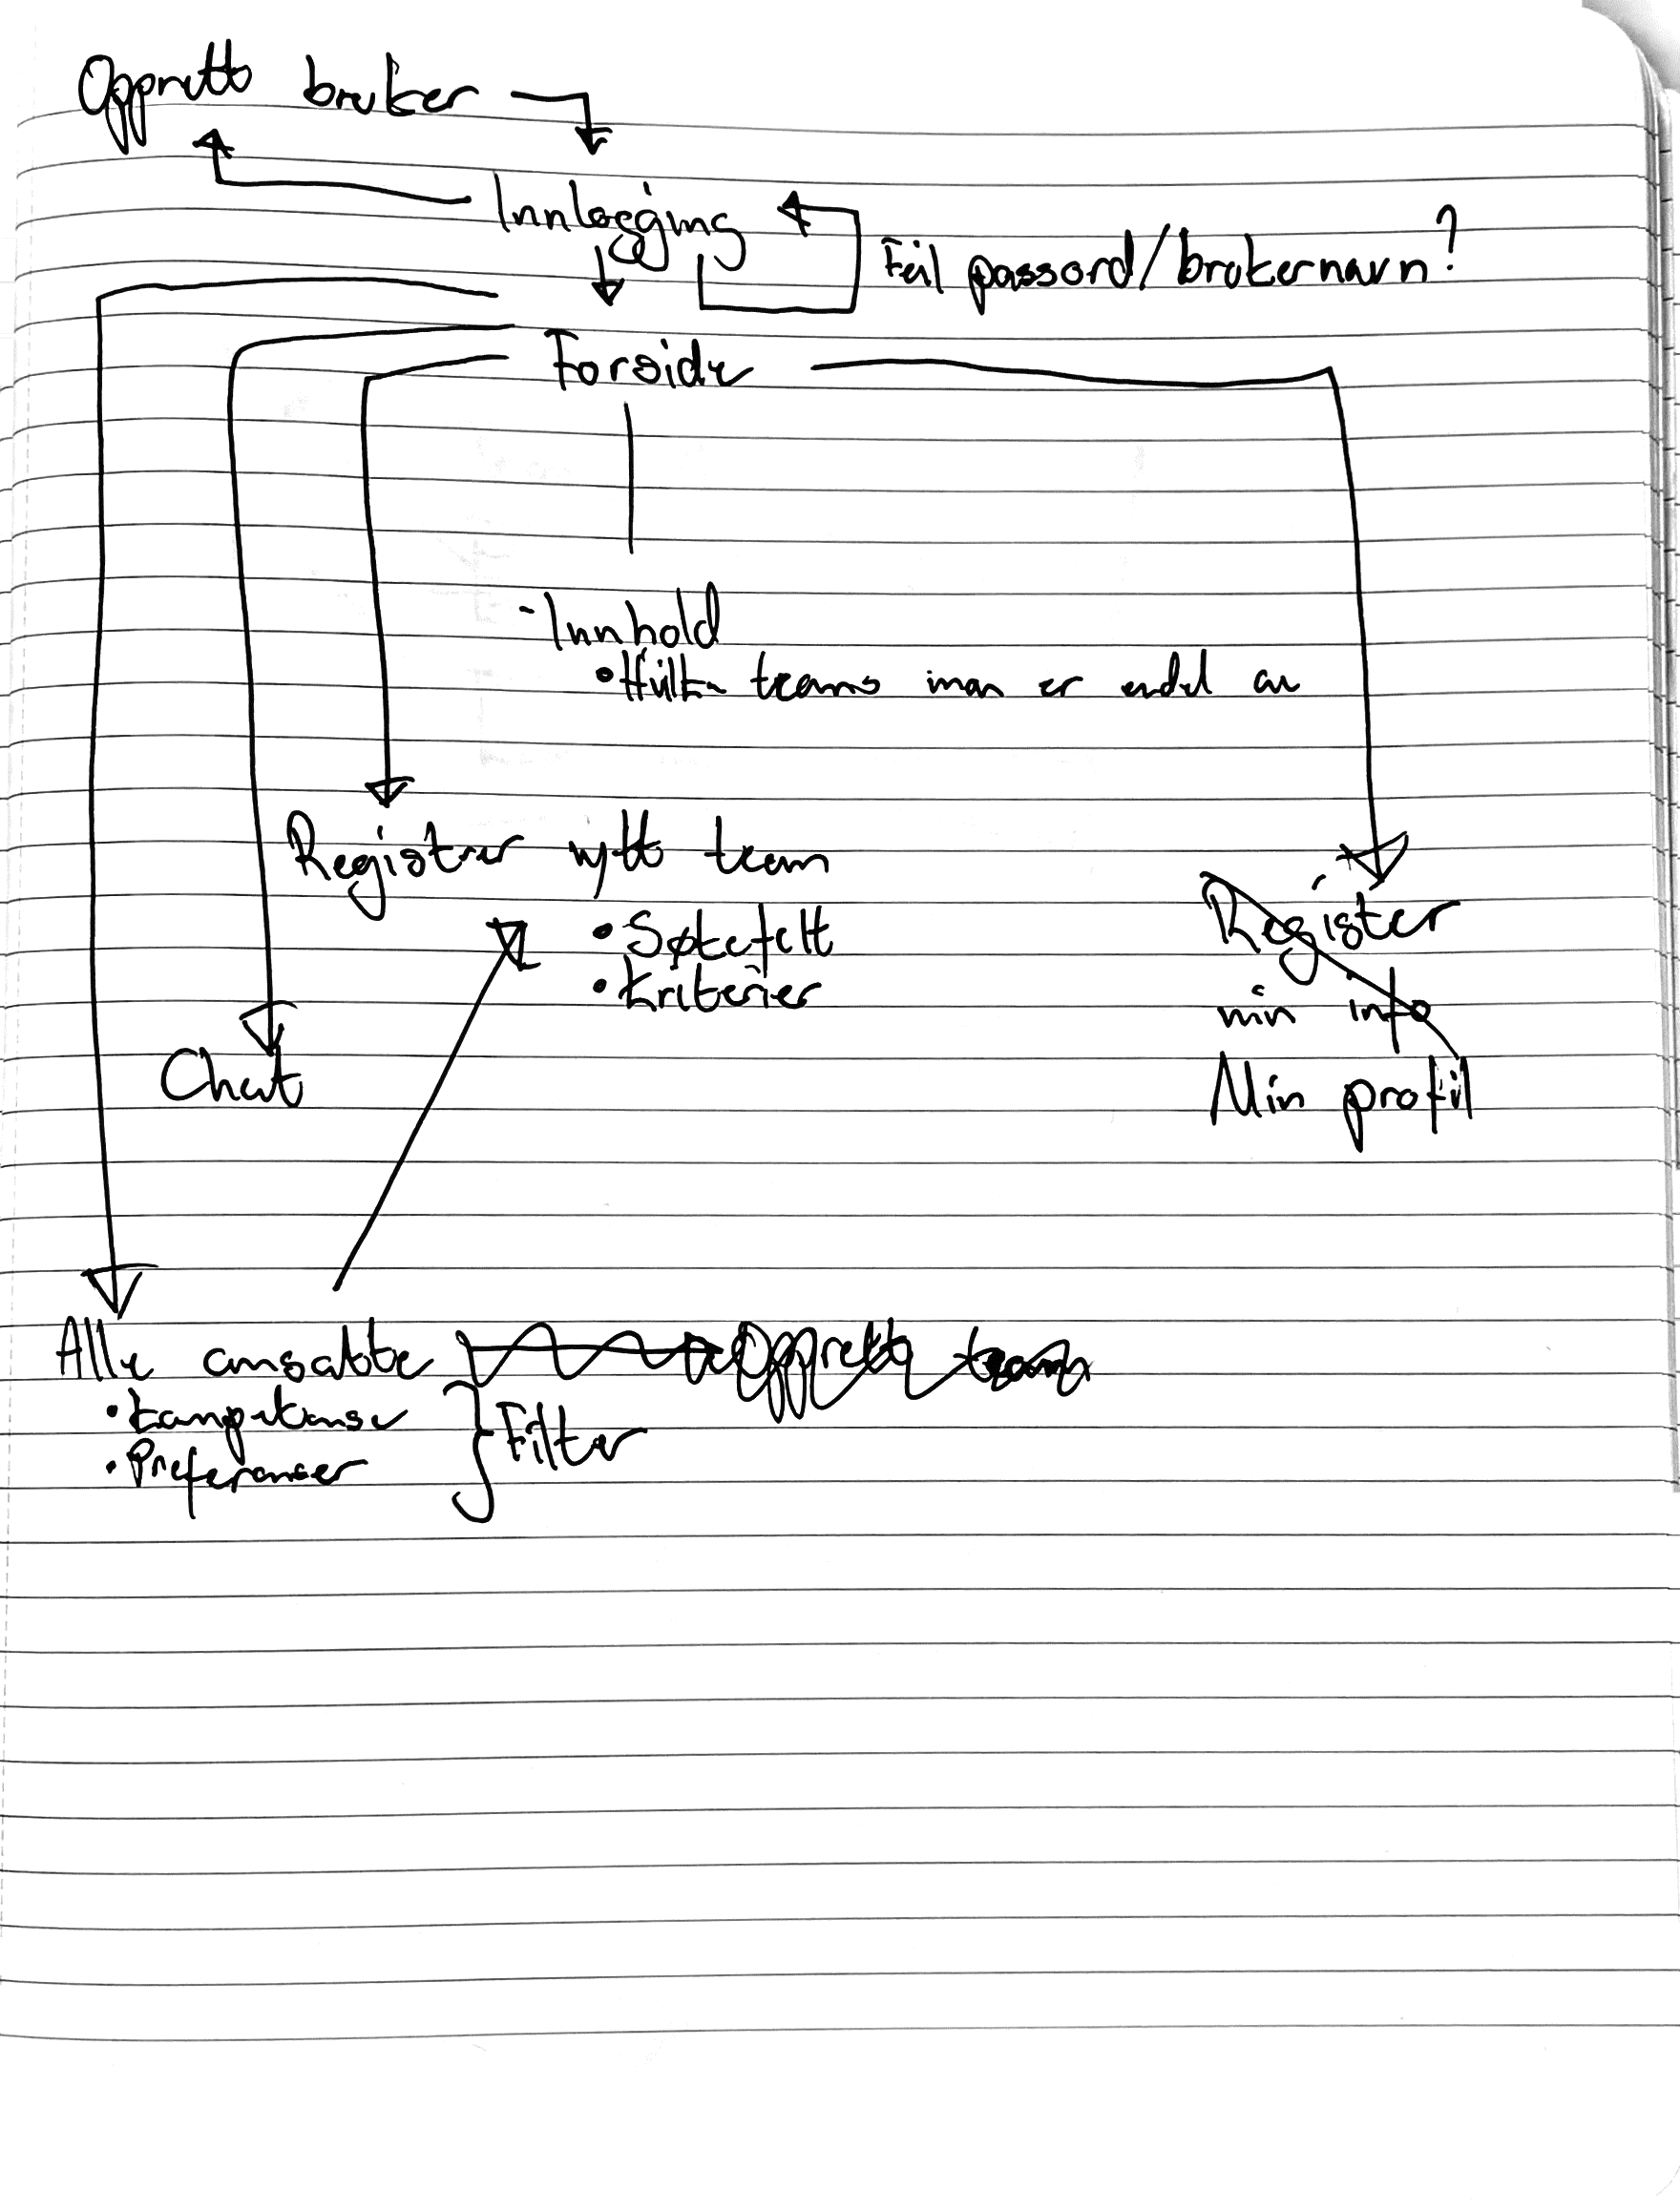 Opprett bruker
Innlogging
Feil passord/brukernavn?
Forside
- Innhold
• Hvilke teams man er endel av
Registrer nytt team
• Søkefelt
• Kriterier
Register
min info
Min profil
Chat
Alle ansatte
Opprett team
• Kompetanse
• Preferanser
} Filter